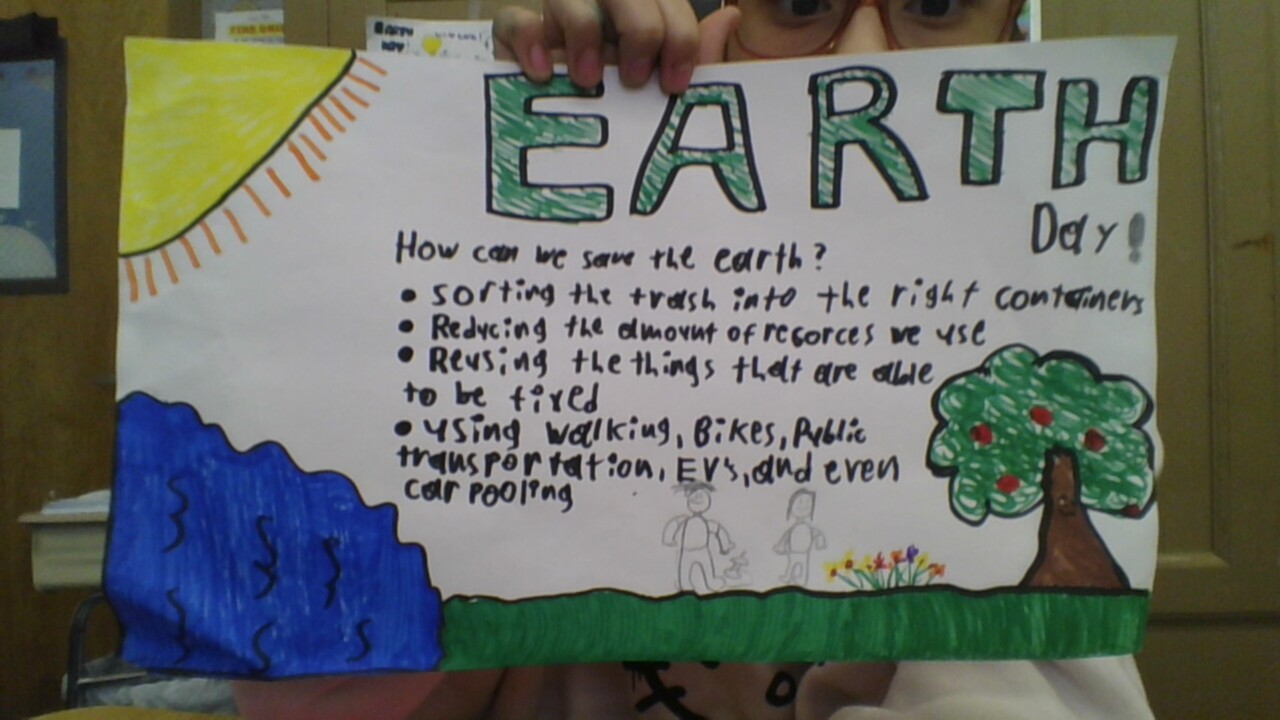 EARTH
Day!
How can we save the earth?
• sorting the trash into the right containers
• Reducing the amount of resorces we use
• Reusing the things that are able
to be fixed
• using walking, Bikes, Public
transportation, EV's, and even
car pooling